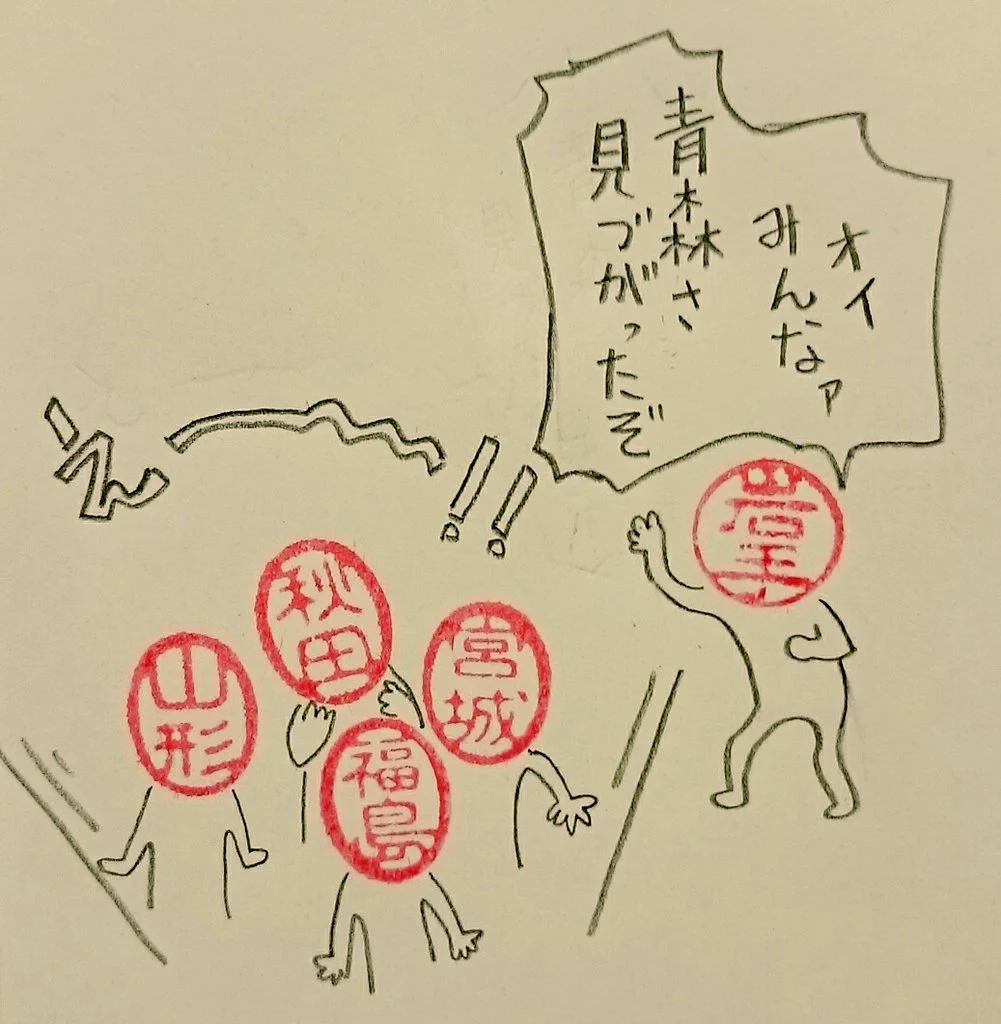 オイ
みんなァ
青森さ
見づがったぞ
え〜!!
秋田
宮城
山形
福島